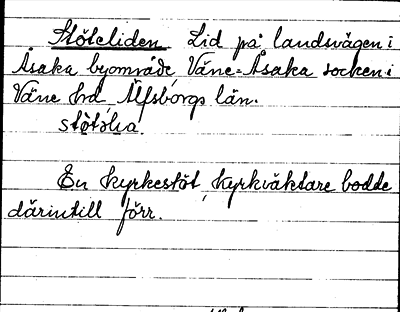 Stöteliden Lid på landsvägen i
Åsaka byområde Väne-Åsaka socken i
Väne hrd Älfsborgs län.
En kyrkestöt, kyrkväktare bodde
därintill förr.